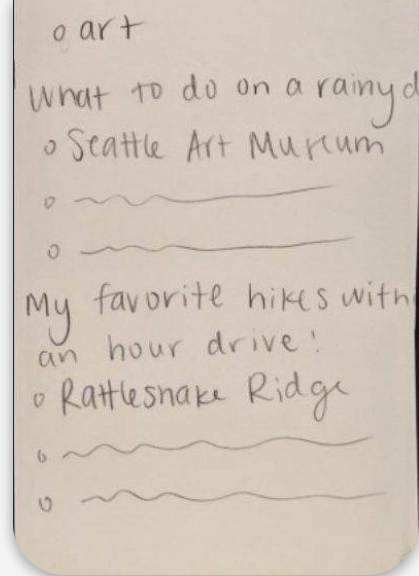 o art
What to do on a rainy d
o Seattle Art Museum
o
o
My favorite hikes with
an hour drive:
o Rattlesnake Ridge
o
o